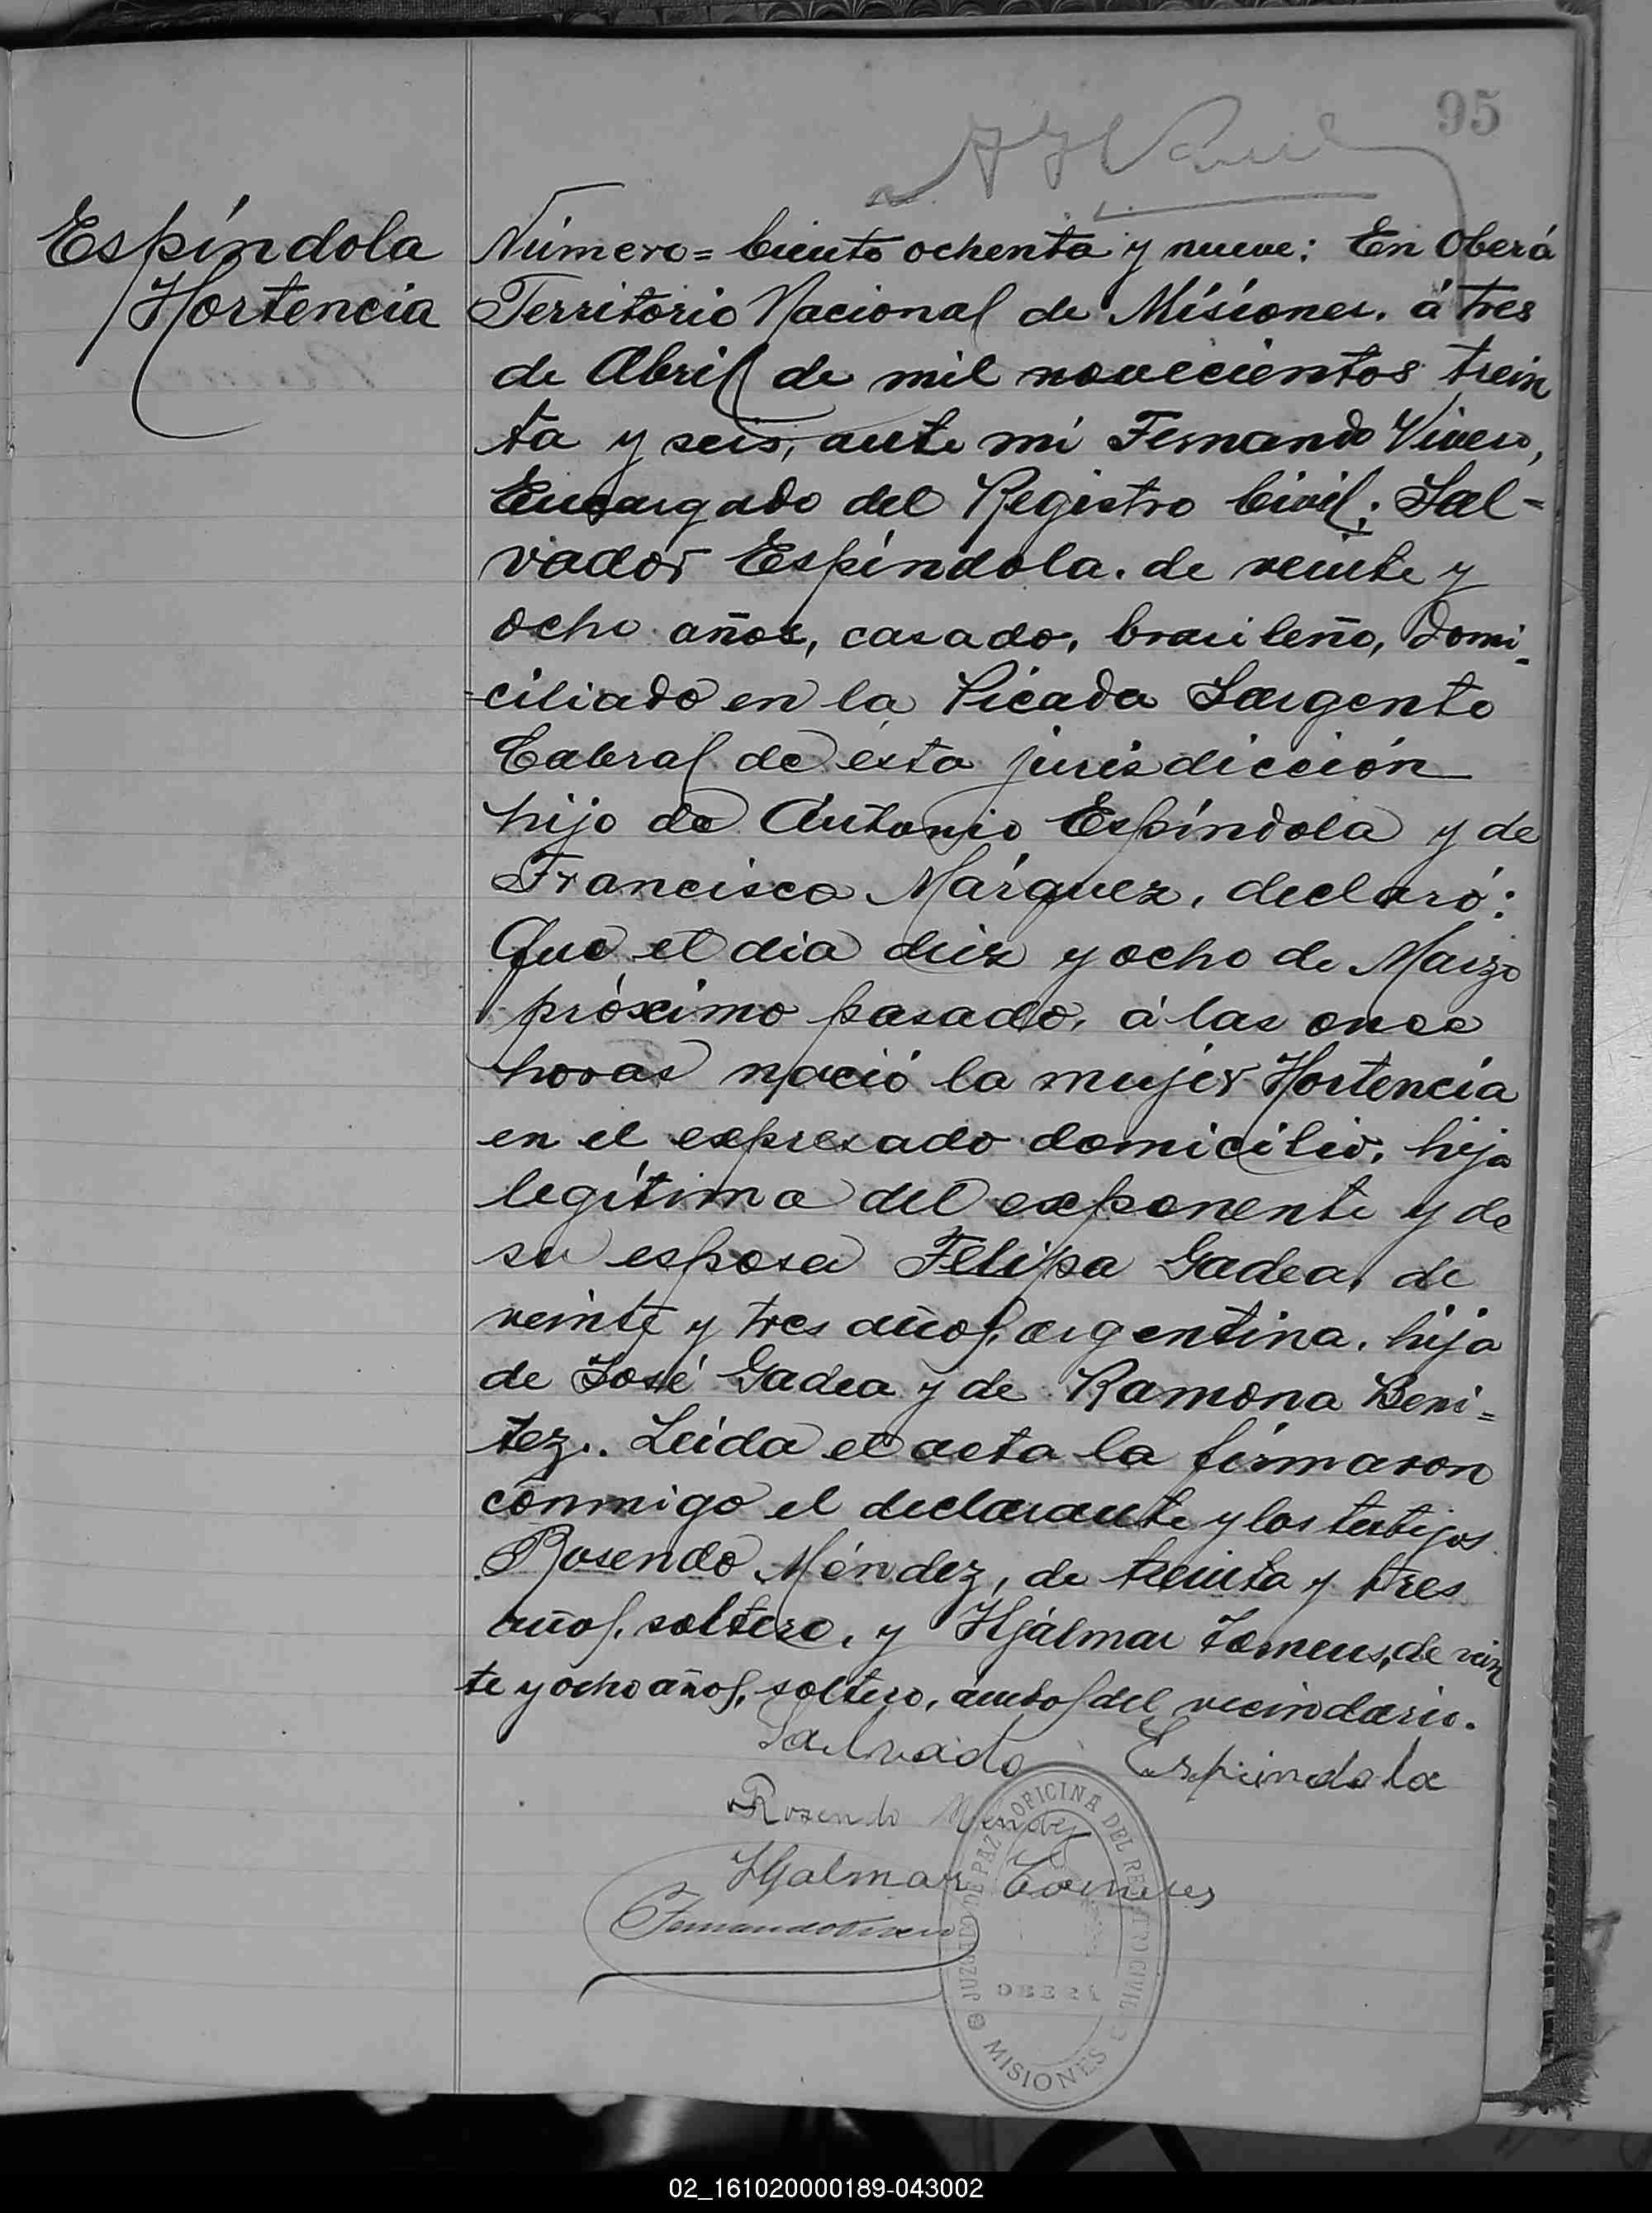 95
Espíndola
Hortencia
Número = Ciento ochenta y nueve: En Oberá
Territorio Nacional de Misiones. á tres
de Abril de mil novecientos trein
ta y seis, ante mí Fernando Vivero,
Encargado del Registro Civil; Sal=
vador Espíndola. de veinte y
ocho años, casado, brasileño, domi=
=ciliado en la Picada Sargento
Cabral de ésta jurisdicción
hijo de Antonio Espíndola y de
Francisca Márquez, declaró:
Que el dia diez y ocho de Marzo
próximo pasado, á las once
horas nació la mujer Hortencia
en el expresado domicilio, hija
legítima del exponente y de
su esposa Felipa Gadea, de
veinte y tres años, argentina, hija
de José Gadea y de Ramona Beni=
tez.. Leída el acta la firmaron
conmigo el declarante y los testigos
Rosendo Méndez, de treinta y tres
años, soltero, y Hjálmar de vein
te y ocho años, soltero, ambos del vecindario.
Salvado Espindola
Rosendo Mendez
Hjalmar
Fernando Vivero
JUZGADO DE PAZ OFICINA DEL REGISTRO CIVIL
OBERÁ
MISIONES
02_161020000189-043002